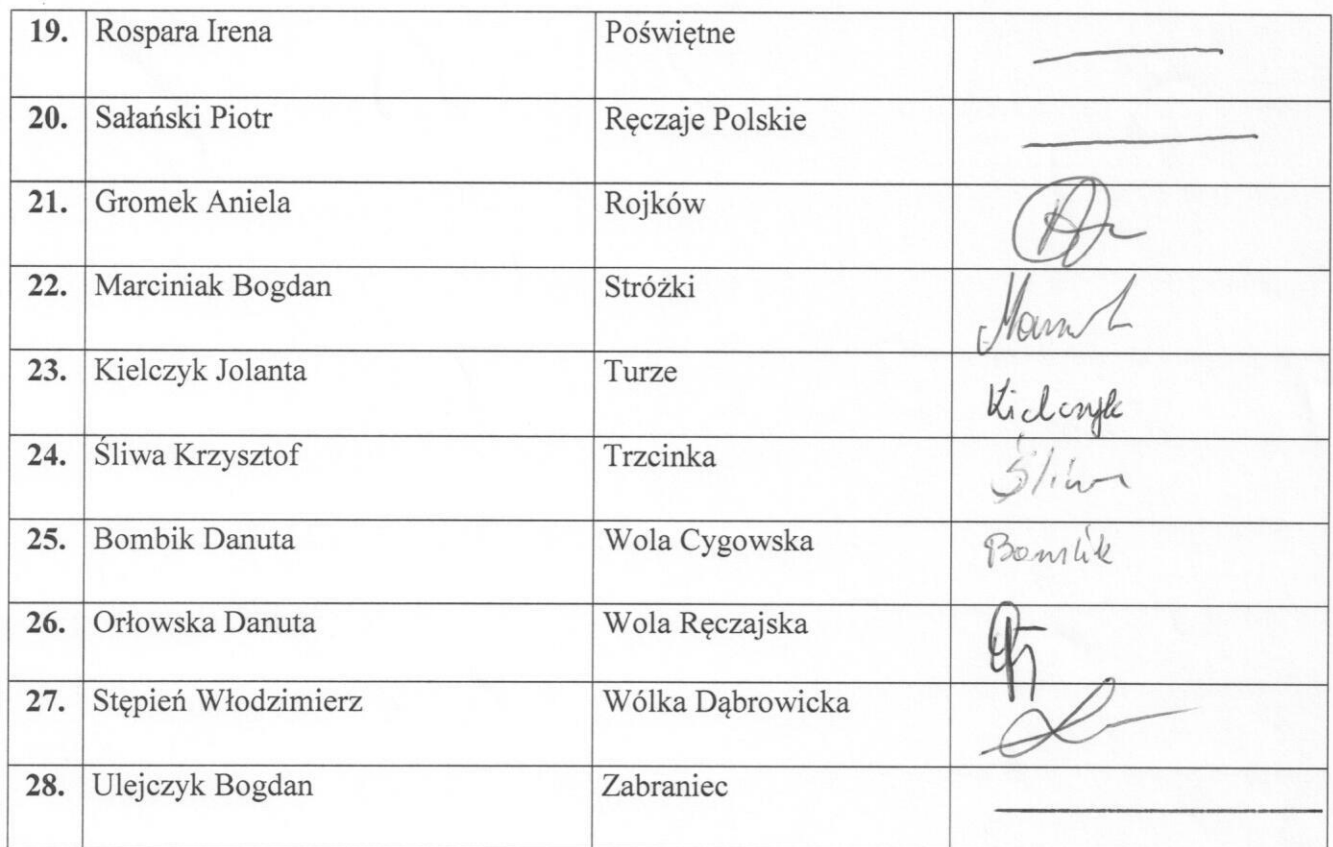 19. Rospara Irena Poświętne
20. Sałański Piotr Ręczaje Polskie
21. Gromek Aniela Rojków
22. Marciniak Bogdan Stróżki
23. Kielczyk Jolanta Turze Kielczyk
24. Śliwa Krzysztof Trzcinka Śliwa
25. Bombik Danuta Wola Cygowska Bombik
26. Orłowska Danuta Wola Ręczajska
27. Stępień Włodzimierz Wólka Dąbrowicka
28. Ulejczyk Bogdan Zabraniec